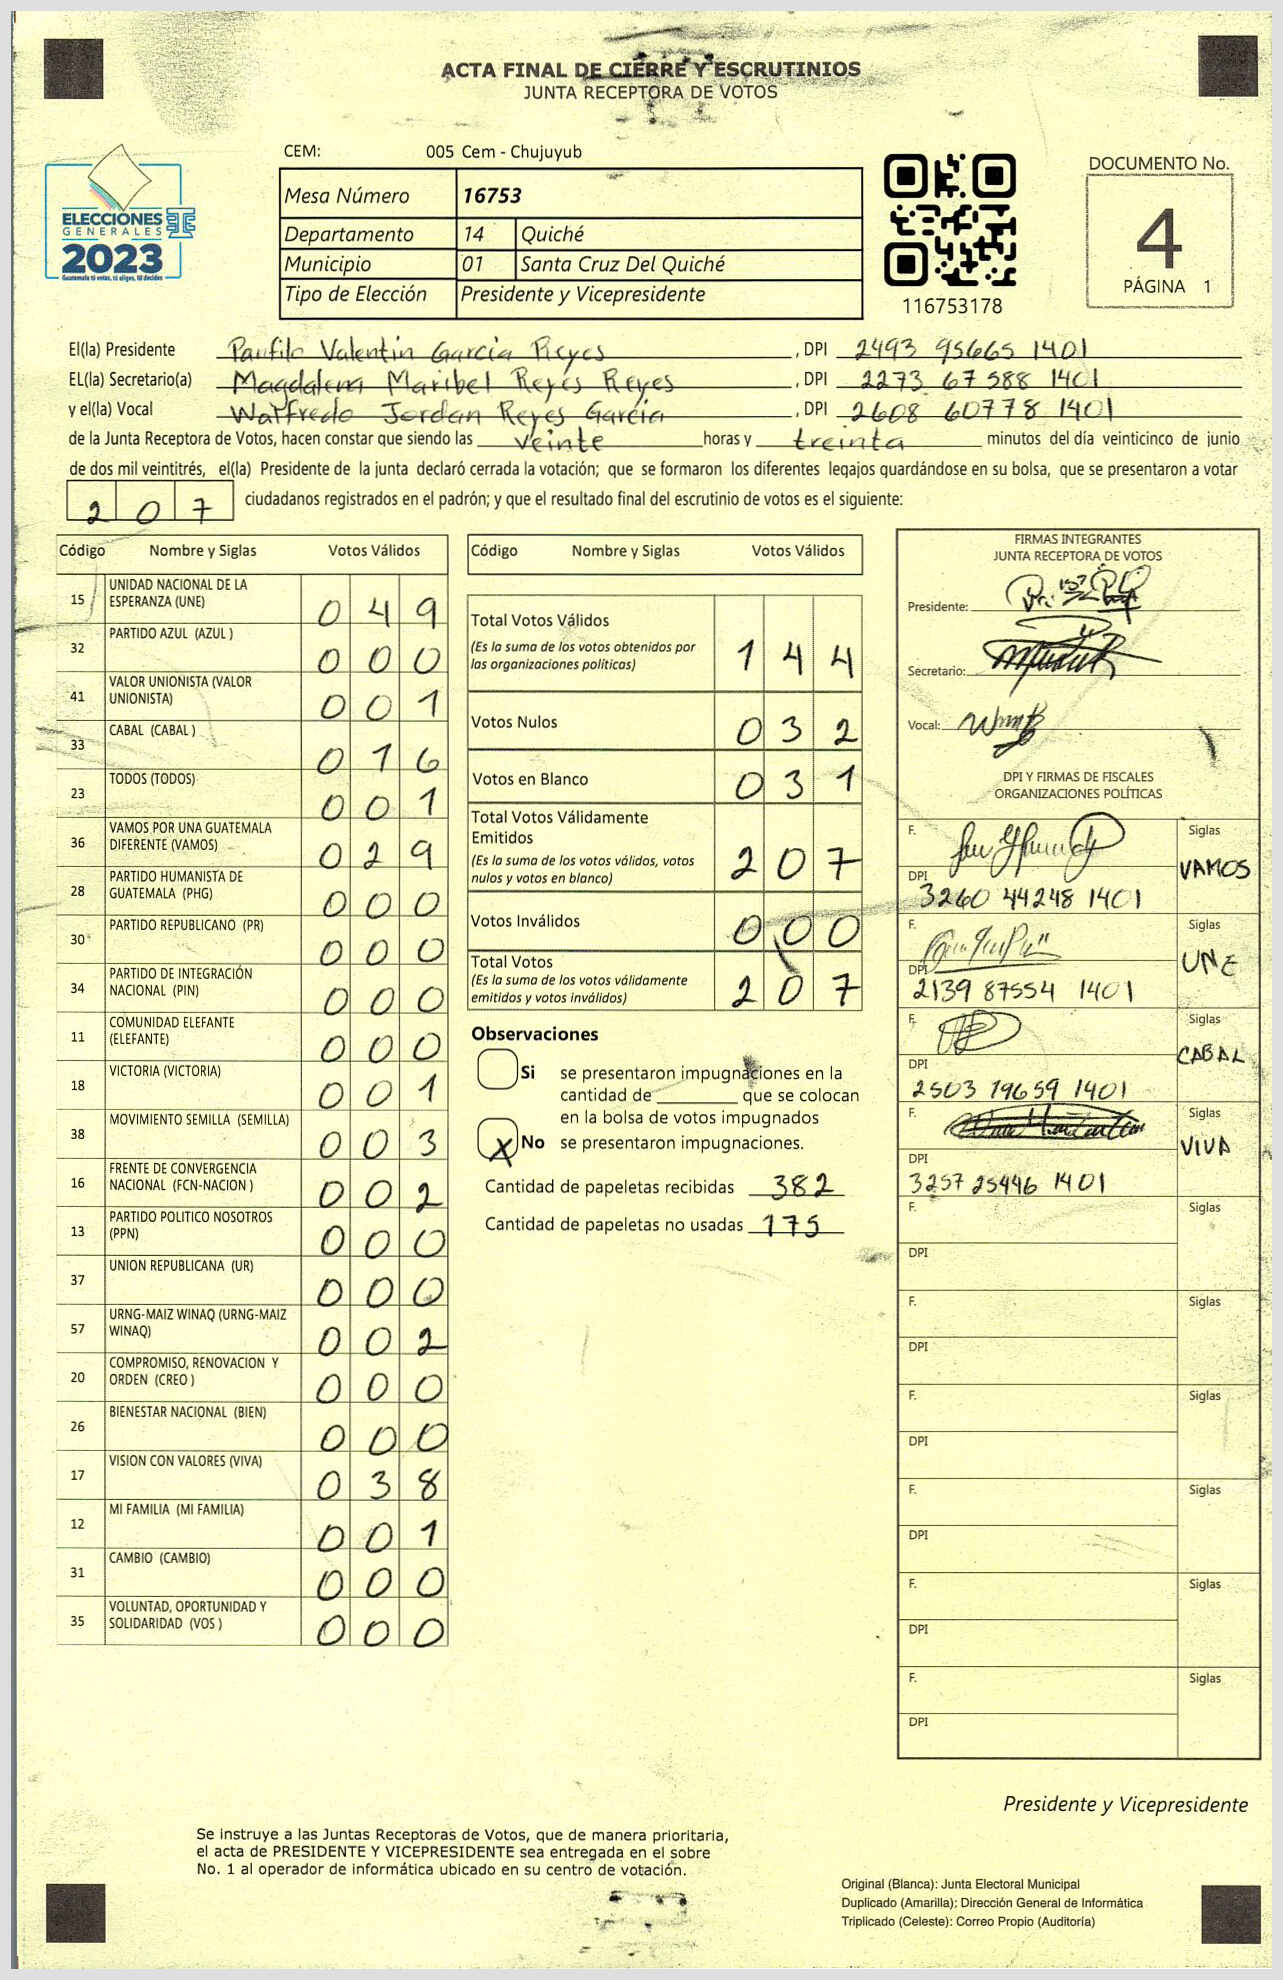 ACTA FINAL DE CIERRE Y ESCRUTINIOS
JUNTA RECEPTORA DE VOTOS
ELECCIONES
GENERALES
2023
Guatemala tú votas, tú eliges, tú decides
CEM: 005 Cem - Chujuyub
Mesa Número 16753
Departamento 14 Quiché
Municipio 01 Santa Cruz Del Quiché
Tipo de Elección Presidente y Vicepresidente
116753178
DOCUMENTO No.
4
PÁGINA 1
El(la) Presidente Panfilo Valentin Garcia Reyes , DPI 2493 95665 1401
EL(la) Secretario(a) Magdalena Maribel Reyes Reyes , DPI 2273 67588 1401
y el(la) Vocal Walfredo Jordan Reyes Garcia , DPI 2608 60778 1401
de la Junta Receptora de Votos, hacen constar que siendo las veinte horas y treinta minutos del día veinticinco de junio
de dos mil veintitrés, el(la) Presidente de la junta declaró cerrada la votación; que se formaron los diferentes legajos quardándose en su bolsa, que se presentaron a votar
207 ciudadanos registrados en el padrón; y que el resultado final del escrutinio de votos es el siguiente:
Código Nombre y Siglas Votos Válidos
15 UNIDAD NACIONAL DE LA
ESPERANZA (UNE) 0 4 9
32 PARTIDO AZUL (AZUL ) 0 0 0
41 VALOR UNIONISTA (VALOR
UNIONISTA) 0 0 1
33 CABAL (CABAL ) 0 1 6
23 TODOS (TODOS) 0 0 1
36 VAMOS POR UNA GUATEMALA
DIFERENTE (VAMOS) 0 2 9
28 PARTIDO HUMANISTA DE
GUATEMALA (PHG) 0 0 0
30 PARTIDO REPUBLICANO (PR) 0 0 0
34 PARTIDO DE INTEGRACIÓN
NACIONAL (PIN) 0 0 0
11 COMUNIDAD ELEFANTE
(ELEFANTE) 0 0 0
18 VICTORIA (VICTORIA) 0 0 1
38 MOVIMIENTO SEMILLA (SEMILLA) 0 0 3
16 FRENTE DE CONVERGENCIA
NACIONAL (FCN-NACION ) 0 0 2
13 PARTIDO POLITICO NOSOTROS
(PPN) 0 0 0
37 UNION REPUBLICANA (UR) 0 0 0
57 URNG-MAIZ WINAQ (URNG-MAIZ
WINAQ) 0 0 2
20 COMPROMISO, RENOVACION Y
ORDEN (CREO ) 0 0 0
26 BIENESTAR NACIONAL (BIEN) 0 0 0
17 VISION CON VALORES (VIVA) 0 3 8
12 MI FAMILIA (MI FAMILIA) 0 0 1
31 CAMBIO (CAMBIO) 0 0 0
35 VOLUNTAD, OPORTUNIDAD Y
SOLIDARIDAD (VOS ) 0 0 0
Código Nombre y Siglas Votos Válidos
Total Votos Válidos
(Es la suma de los votos obtenidos por
las organizaciones políticas) 1 4 4
Votos Nulos 0 3 2
Votos en Blanco 0 3 1
Total Votos Válidamente
Emitidos
(Es la suma de los votos válidos, votos
nulos y votos en blanco) 2 0 7
Votos Inválidos 0 0 0
Total Votos
(Es la suma de los votos válidamente
emitidos y votos inválidos) 2 0 7
Observaciones
Si se presentaron impugnaciones en la
cantidad de ________ que se colocan
en la bolsa de votos impugnados
X No se presentaron impugnaciones.
Cantidad de papeletas recibidas 382
Cantidad de papeletas no usadas 175
FIRMAS INTEGRANTES
JUNTA RECEPTORA DE VOTOS
Presidente:
Secretario:
Vocal:
DPI Y FIRMAS DE FISCALES
ORGANIZACIONES POLÍTICAS
F. Siglas
VAMOS
DPI
3260 44248 1401
F. Siglas
UNE
DPI
2139 87554 1401
F. Siglas
CABAL
DPI
2503 19659 1401
F. Siglas
VIVA
DPI
3257 25446 1401
F. Siglas
DPI
F. Siglas
DPI
F. Siglas
DPI
F. Siglas
DPI
F. Siglas
DPI
F. Siglas
DPI
Presidente y Vicepresidente
Se instruye a las Juntas Receptoras de Votos, que de manera prioritaria,
el acta de PRESIDENTE Y VICEPRESIDENTE sea entregada en el sobre
No. 1 al operador de informática ubicado en su centro de votación.
Original (Blanca): Junta Electoral Municipal
Duplicado (Amarilla): Dirección General de Informática
Triplicado (Celeste): Correo Propio (Auditoría)